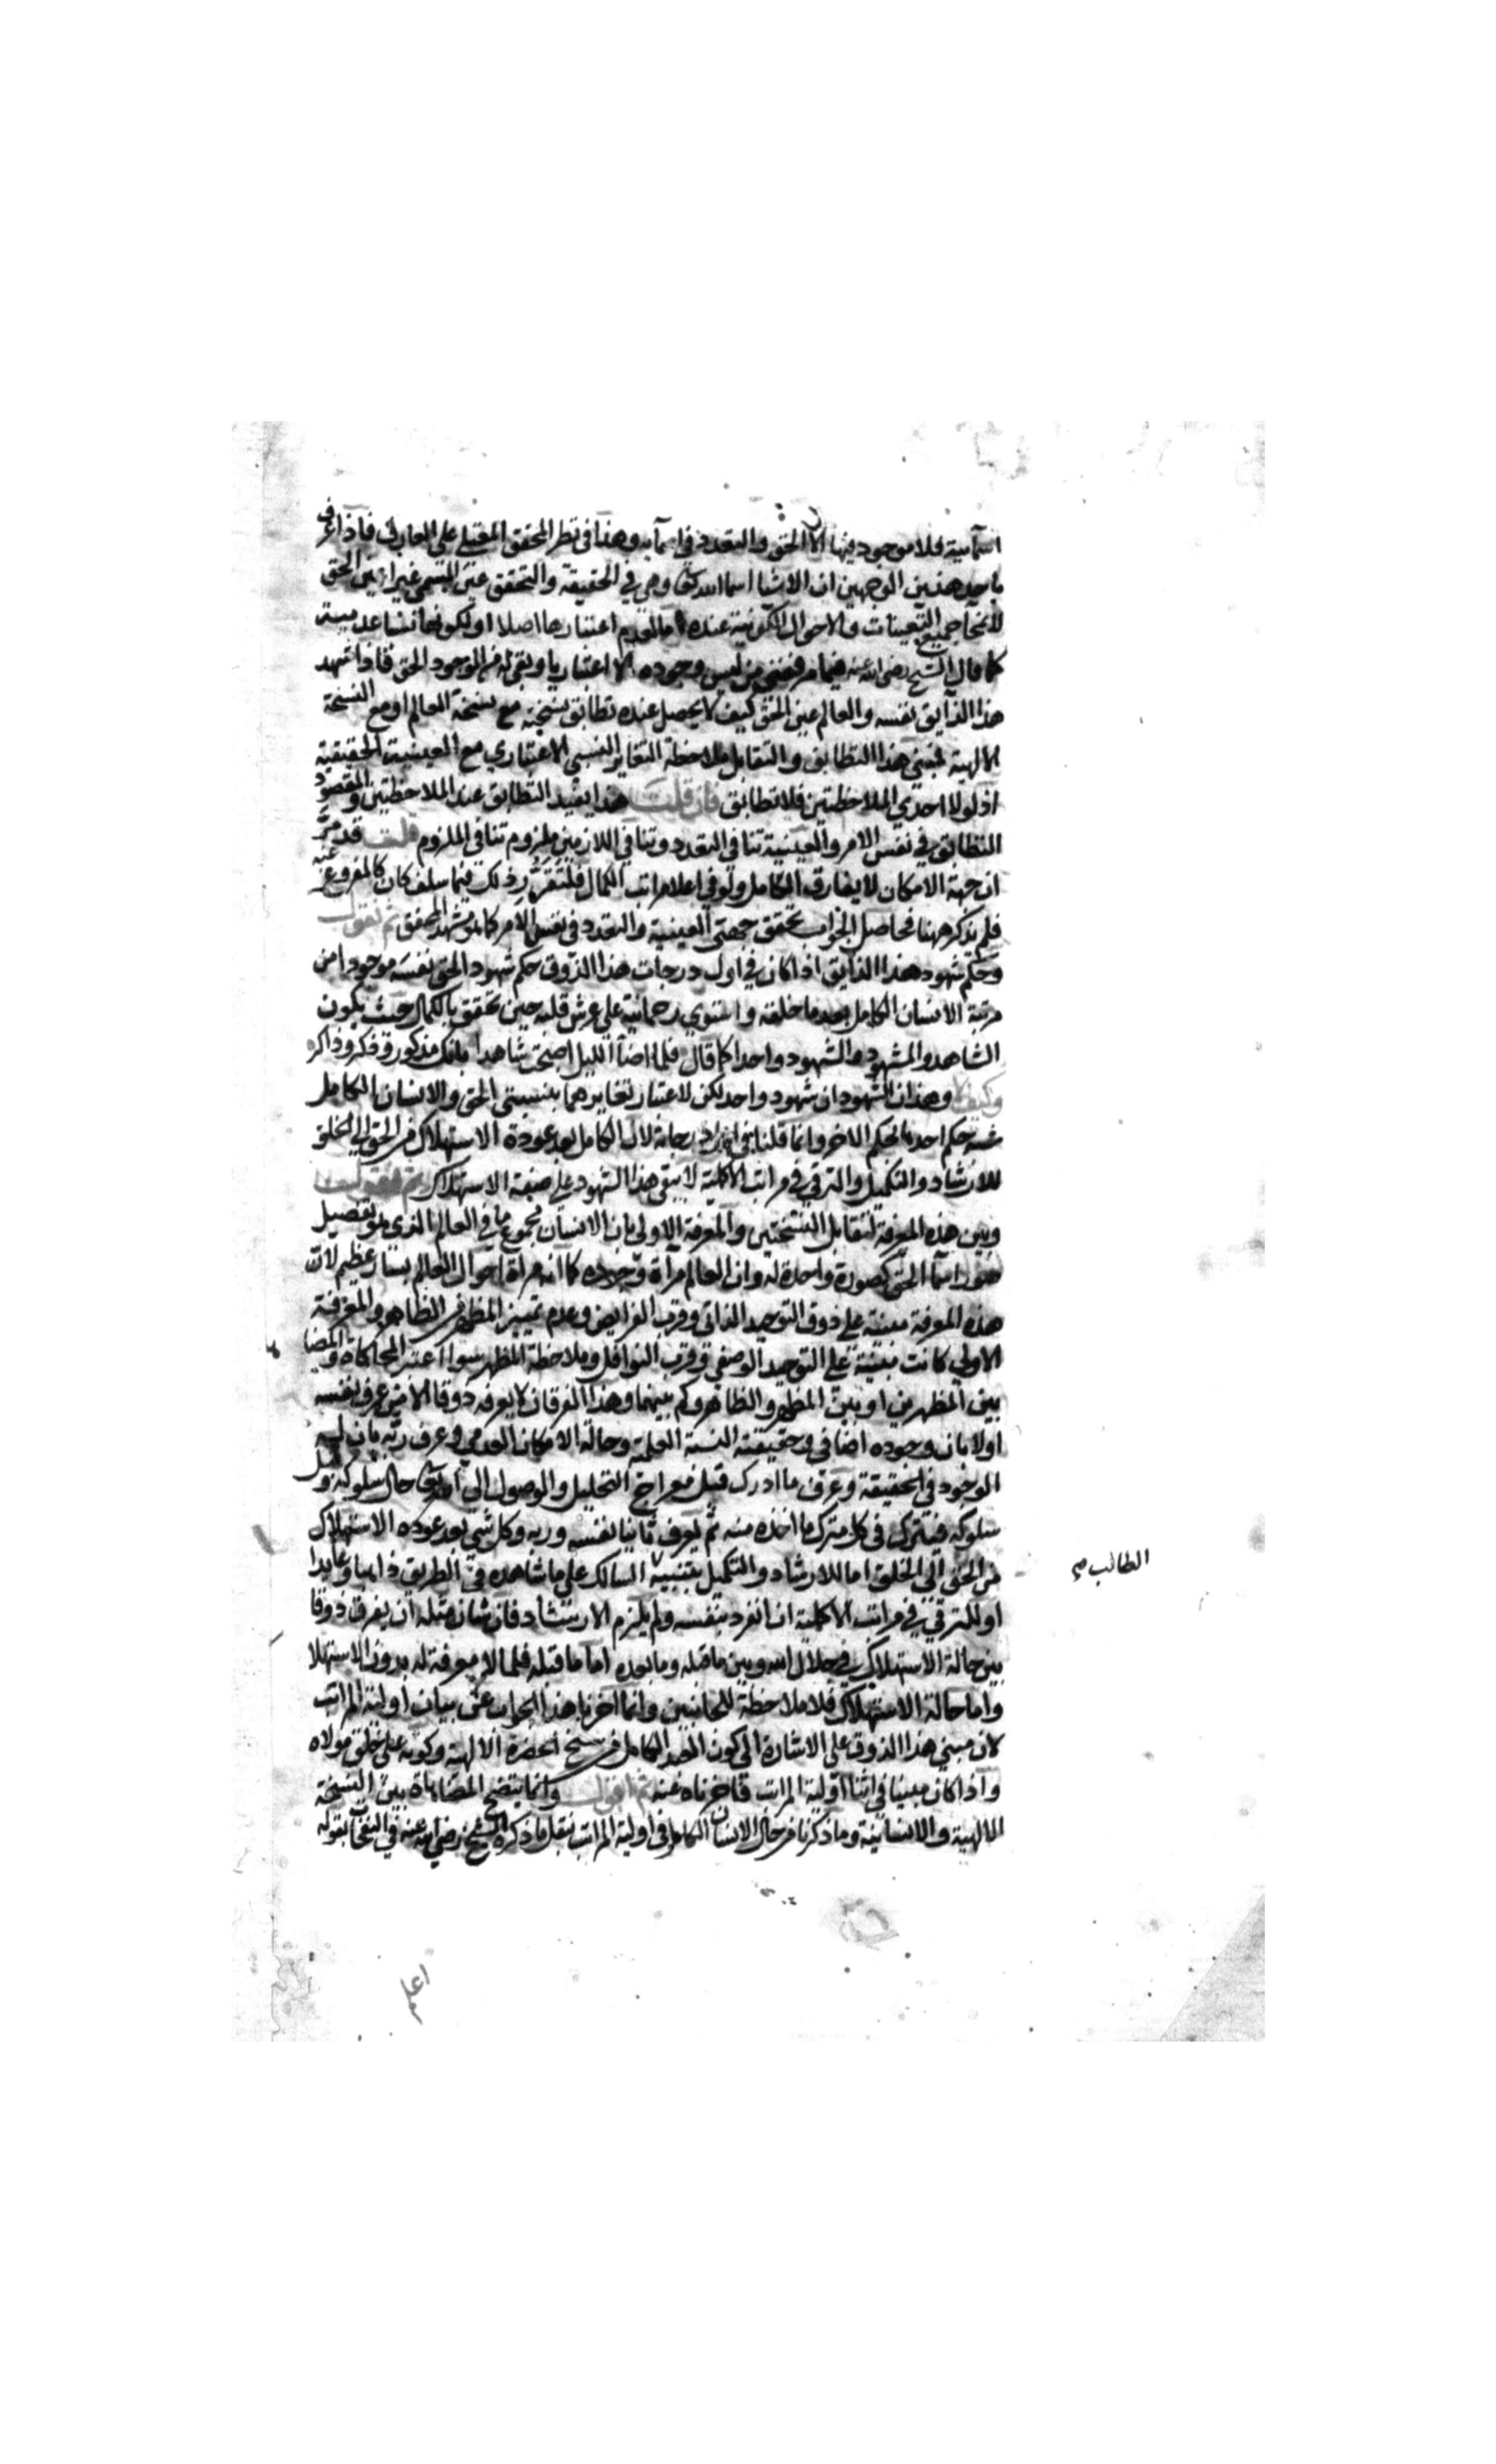 اسمائية فلا موجود فيها الا الحق والتعدد في اسمائه وهذا في نظر المحقق المعتلي على العارف فاذا عرف
باحد هذين الوجهين ان الاشيا اسما الله تعالى وهي في الحقيقة والتحقق عين المسمى غير اين الحق
لانمحا جميع التعينات والاحوال الكونية عنده اما لعدم اعتبارها اصلا او لكونها نسبا عدمية
كما قال الشيخ رضي الله عنه فيما مر ففني من ليس وجوده الا اعتباريا وبقي له الوجود الحق فاذا شهد
هذا الذايق نفسه والعالم عين الحق كيف لا يحصل عنده تطابق نسخته مع نسخة العالم او مع النسخة
الالهية فمبنى هذا التطابق والتقابل ملاحظة التغاير النسبي الاعتباري مع العينية الحقيقية
اذ لولا احدي الملاحظتين فلا تطابق فان قلت هذا يفيد التطابق عند الملاحظتين والمقصود
التطابق في نفس الامر والعينية تنافي التعدد وتنافي اللازمين ملزوم تنافي الملزوم قلت قد مر
ان جهة الامكان لا يفارق الكامل ولو في اعلا مراتب الكمال فلتقرر ذلك فيما سلف كان كالمفروغ عنه
فلم يذكر ههنا فحاصل الجواب تحقق جهتي العينية والتعدد في نفس الامر كما هو مشهد المحقق ثم نقول
وحكم شهود هذا الذايق اذا كان في اول درجات هذا الذوق حكم شهود الحق نفسه موجودا من
مرتبة الانسان الكامل بعد ما خلقه واستوي رحمانية على عرش قلبه حين تحقق بالكمال حيث يكون
الشاهد والمشهود والشهود واحدا كما قال فلما اضا الليل اصبحت شاهدا بانك مذكور وذكر وذاكر
وكيف لا وهذان الشهودان شهود واحد لكن لاعتبار تغايرهما بنسبتي الحق والانسان الكامل
شبه حكم احدهما بحكم الاخر وانما قلنا في اول درجاته لان الكامل بعد عوده الاستهلاك من الحق الى الخلق
للارشاد والتكميل والترقي في مراتب الاكملية لا يبقى هذا الشهود على صفة الاستهلاك ثم نقول
وبين هذه المعرفة لتقابل النسختين والمعرفة الاولى بان الانسان مجموع ما في العالم الذي هو تفصيل
صور اسما الحق كصورة واحدة له وان العالم مرآة وجوده كما انه مرآة احوال العالم بسار عظيم لان
هذه المعرفة مبنية على ذوق التوحيد الذاتي وقرب الفرايض وعدم تمييز المظهر من الظاهر والمعرفة
الاولي كانت مبنية على التوحيد الوصفي وقرب النوافل وملاحظة المظهر سوا اعتبر المحاكاة والمضاهاة
بين المظهرين او بين المظهر والظاهر وكم بينهما وهذا الفرقان لا يعرفه ذوقا الا من عرف نفسه
اولا بان وجوده اضافي وحقيقته النسبة العلمية وحالة الامكان العدمي وعرف ربه بان ليه
الوجود في الحقيقة وعرف ما ادرك قبل معراج التحليل والوصول الى حال سلوكه وقبل
سلوكه فيترك في كل مترك ما اخذه منه ثم يعرف ثانيا نفسه وربه وكل شي بعد عوده الاستهلاك
من الحق الى الخلق اما للارشاد والتكميل بتنبيه السالك على ما شاهده في الطريق ذاهبا وعايدا
او للترقي في مراتب الاكملية ان انفرد بنفسه ولم يلزم الارشاد فان شان مثله ان يفرق ذوقا
بين حالة الاستهلاك في جلال الله وبين ما قبله وما بعده اما ما قبله فلما لا معرفة له بدون الاستهلا
واما حالة الاستهلاك فلا ملاحظة للجانبين وانما اخرنا هذا الجواب عن بيان اولية المراتب
لان مبنى هذا الذوق على الاشارة الى كون العبد الكامل من سنخ الحضرة الالهية وكونه على خلق مولاه
واذا كان مبينا في اثنا اولية المراتب فاخرناه عنه ثم اقول وانما يتضح المضاهاة بين النسخة
الالهية والانسانية وما ذكرنا من حال الانسان الكامل في اولية المراتب بنقل ما ذكره الشيخ رضي الله عنه في النفحات بقوله
الطالب صح
اعلم